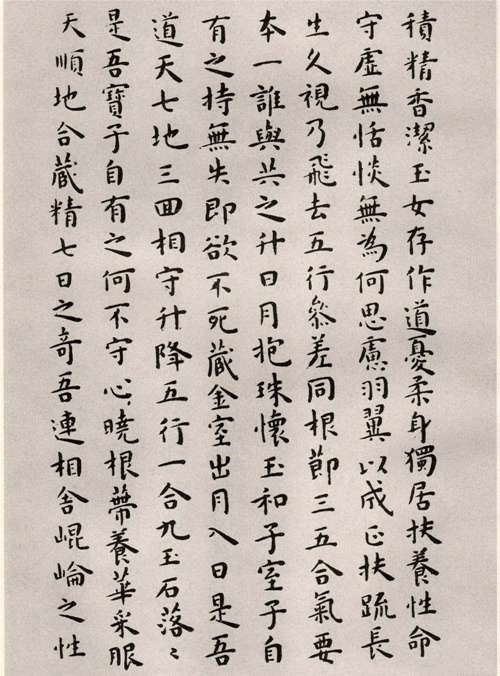 積精香潔玉女存作道憂柔身獨居扶養性命
守虛無恬惔無為何思慮羽翼以成正扶疏長
生久視乃飛去五行叅差同根節三五合氣要
本一誰與共之升日月抱珠懷玉和子室子自
有之持無失即欲不死藏金室出月入日是吾
道天七地三回相守升降五行一合九玉石落〻
是吾寶子自有之何不守心曉根蔕養華采服
天順地合藏精七日之奇吾連相舍崐崘之性